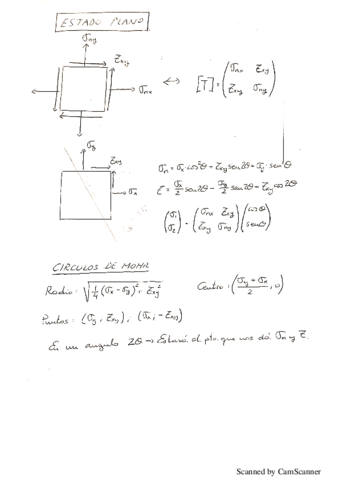 ESTADO PLANO
σny
τxy
σnx ↔ [T] = (σnx τxy
τxy σny)
σy
τxy
σx
σn = σx·cos²θ + τxy sen2θ + σy·sen²θ
τ = σx/2 sen2θ - σy/2 sen2θ - τxy cos2θ
(σ1
σ2) = (σnx τxy
τxy σny) (cosθ
senθ)
CIRCULOS DE MOHR
Radio: √(1/4 (σx - σy)² - τxy²) Centro: ((σy + σx)/2, 0)
Puntos: (σy, τxy), (σx, -τxy)
En un angulo 2θ → Estará el pto. que nos dá σn y τ.
Scanned by CamScanner